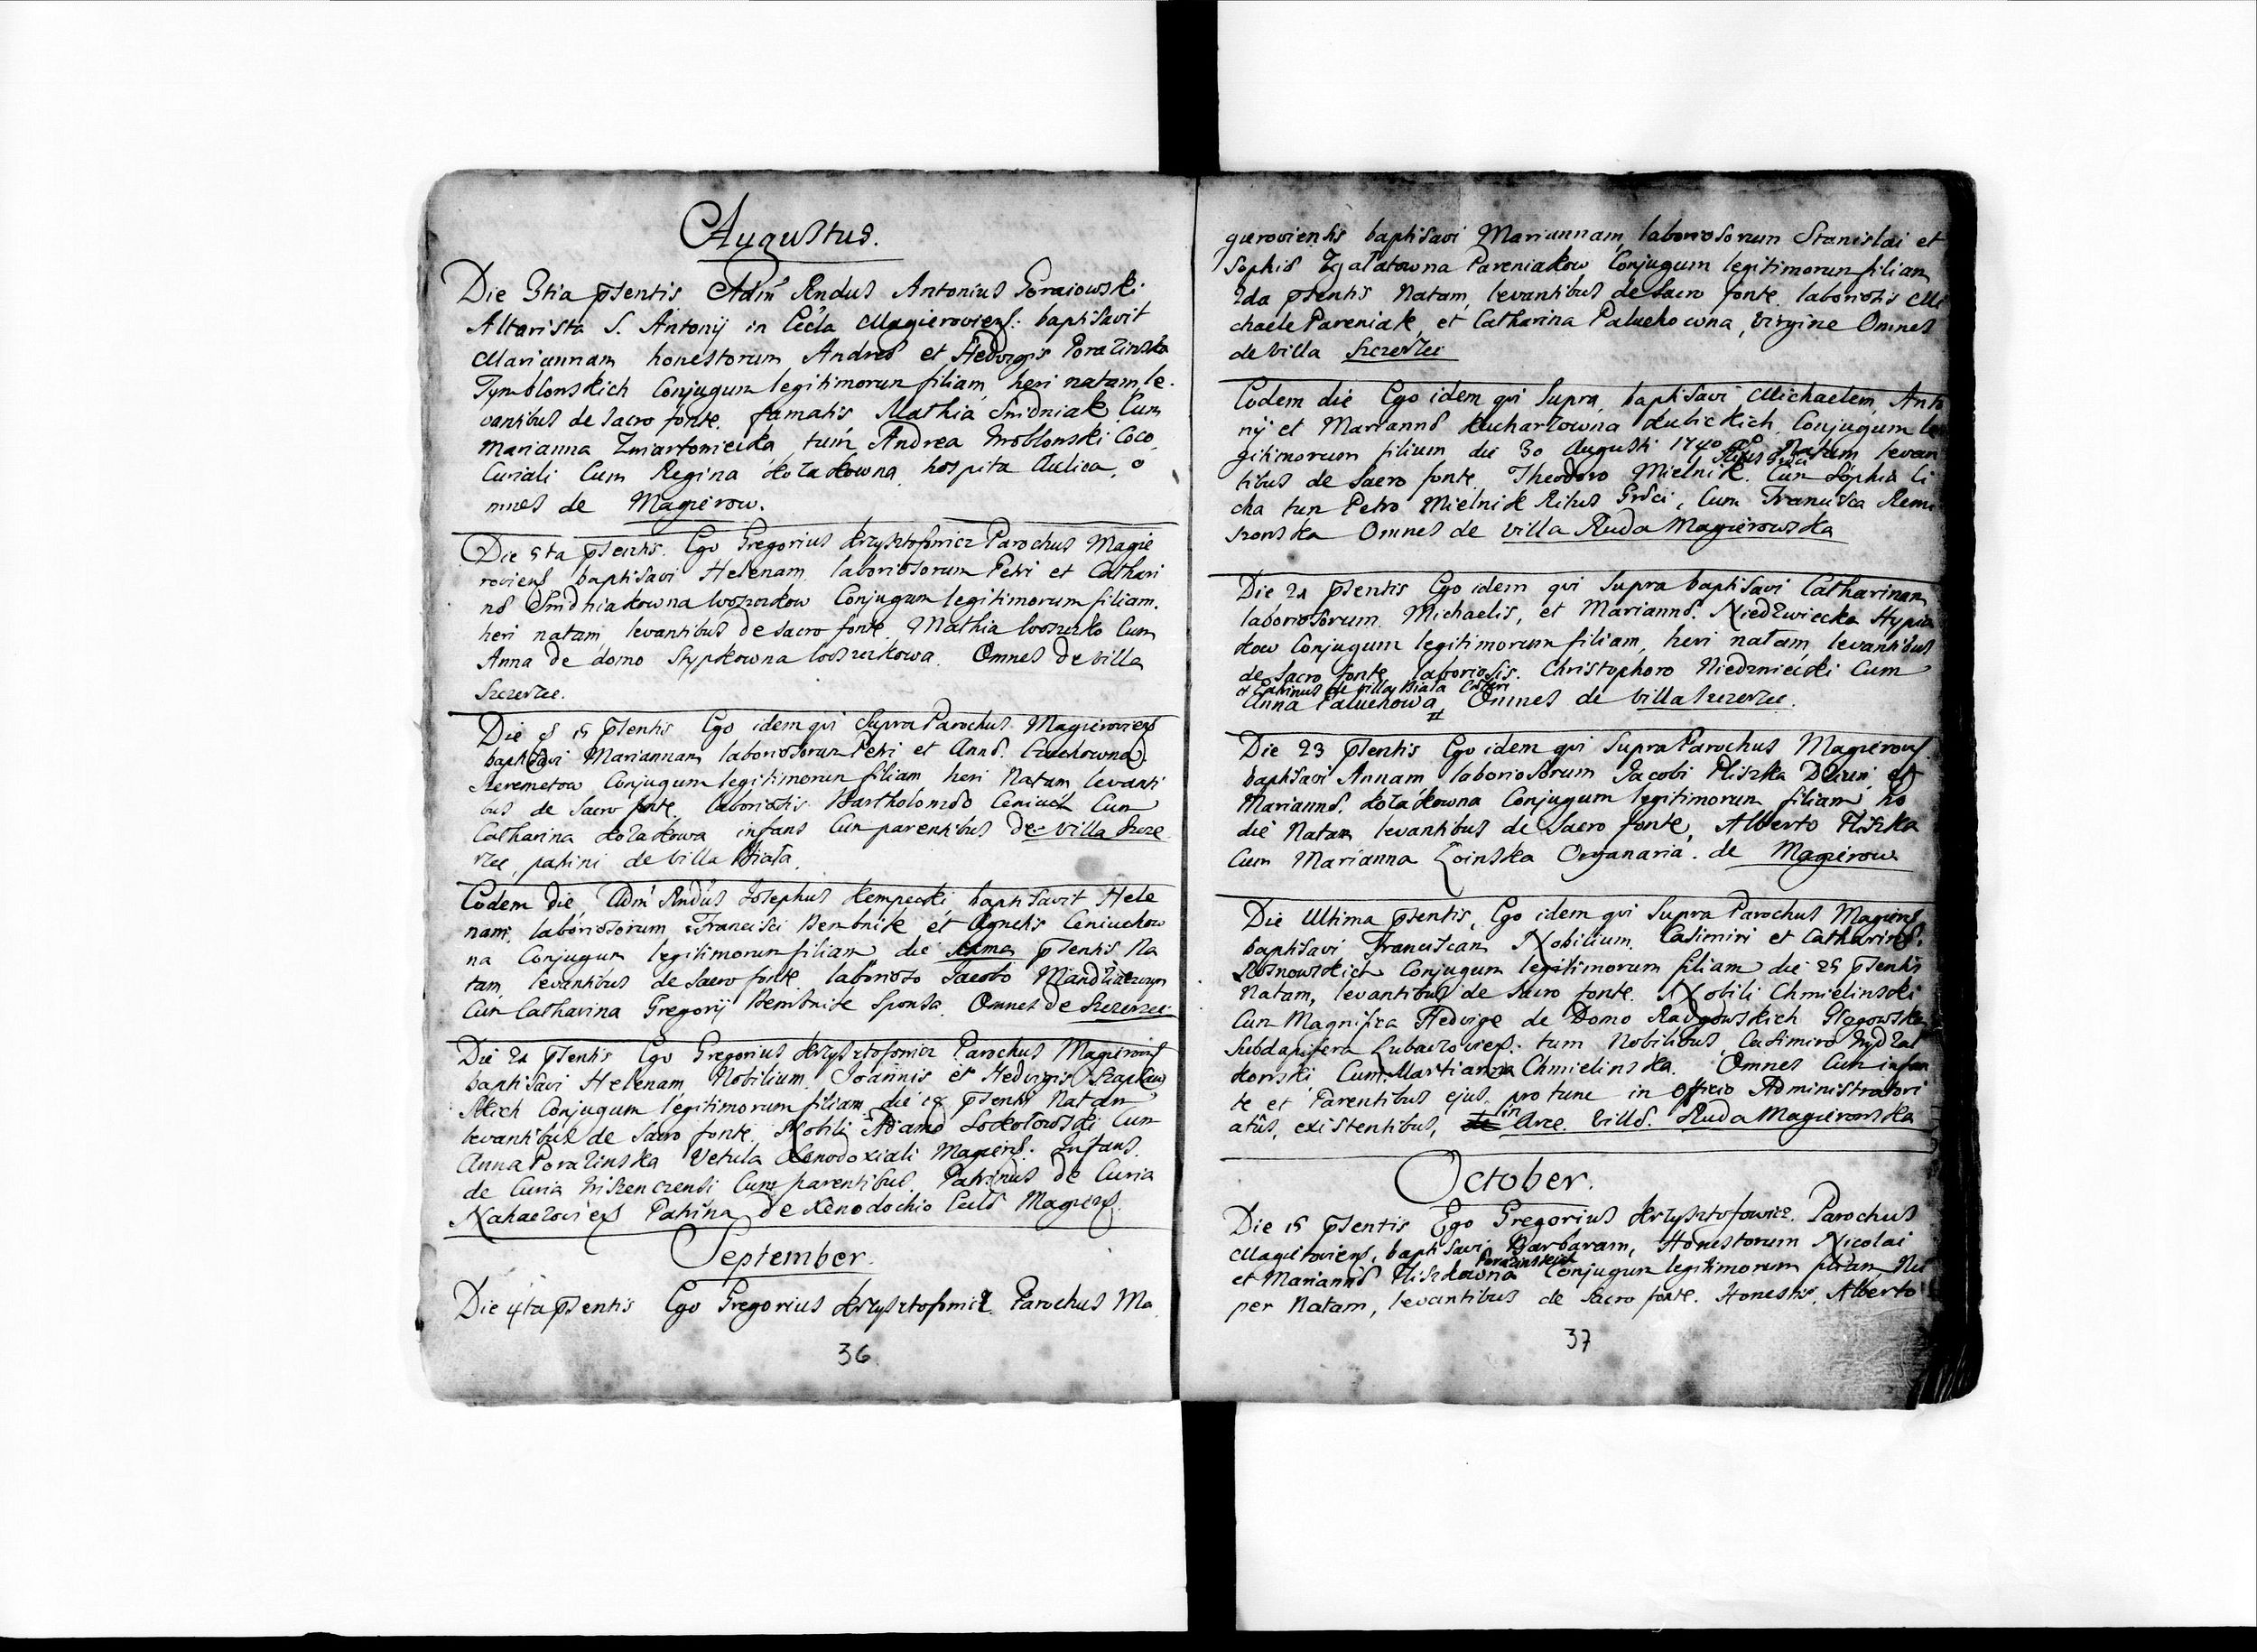 Augustus.
Die 3tia psentis Adm Rndus Antonius Goraiowski
Altarista S. Antonij in Eccla Magieroviens: baptisavit
Mariannam honestorum Andreæ et Hedvigis Porazinska
Conjugum legitimorum filiam, heri natam, le-
vantibus de Sacro fonte. famatis Mathia Smidniak Cum
Marianna tum Andrea Wroblonski Coco
Curiali Cum Regina Kozakowna hospita Aulica, o
mnes de Magierow.
Die 5ta psentis. Ego Gregorius Krzysztofowicz Parochus Magie
roviens baptisavi Helenam laboriosorum Petri et Cathari
næ Smidniakowna Conjugum legitimorum filiam.
heri natam levantibus de sacro fonte. Mathia Cum
Anna de domo Stypkowna Omnes de villa
Szczerzec.
Die psentis Ego idem qui Supra Parochus Magieroviens
baptisavi Mariannam laboriosorum Petri et Annæ
Szeremetow Conjugum legitimorum filiam heri Natam, levanti
bus de Sacro fonte. laboriosis Bartholomæo Ceniuch Cum
Catharina Kozakowa infans Cum parentibus de villa Szcze
rzec, patrini de villa Biała.
Eodem die Adm Rndus Josephus Kempecki baptisavit Hele
nam, laboriosorum Francisci Bembnik et Agnetis Ceniuchow
na Conjugum legitimorum filiam die psentis Na
tam levantibus de Sacro fonte laborioso Jacobo
Cum Catharina Gregorij Bembnik Sponsa. Omnes de Szczerzec.
Die 21 psentis Ego Gregorius Krzysztofowicz Parochus Magierovs
baptisavi Helenam Nobilium Joannis et Hedvigis
skich Conjugum legitimorum filiam die 18 psentis Natam
levantibus de Sacro fonte, Nobili Adamo Sokołowski Cum
Anna Porazinska Vetula Xenodoxiali Magiers. Infans
de Curia Cum parentibus Patrinus de Curia
Patrina de Xenodochio Eccls Magiers.
September.
Die 4ta psentis Ego Gregorius Krzysztofowicz Parochus Ma
36
gieroviensis baptisavi Mariannam laboriosorum Stanislai et
Sophiæ Zgałatowna Pareniakow Conjugum legitimorum filiam
2da psentis Natam, levantibus de Sacro fonte laboriosis Mi
chaele Pareniak et Catharina Paluchowna, virgine Omnes
de villa Szczerzec
Eodem die Ego idem qui Supra, baptisavi Michaelem, Anto
nij et Mariannæ Kucharzowna Kubickich Conjugum le
gitimorum filium die 30 Augusti 1740 Natum levan
Ritus Græci
tibus de Sacro fonte Theodoro Mielnik Cum Sophia Li
cha tum Petro Mielnik Ritus Græci, Cum Francisca Remi
szonska Omnes de villa Ruda Magierowska
Die 21 psentis Ego idem qui Supra baptisavi Catharinam
laboriosorum Michaelis, et Mariannæ Niedzwiecka
kow Conjugum legitimorum filiam, heri natam levantibus
de Sacro fonte laboriosis. Christophoro Niedzwiecki Cum
et Patrinus de villa Biała Cæteri
Anna Paluchowa, Omnes de villa Szczerzec.
Die 23 psentis Ego idem qui Supra Parochus Magierovs
baptisavi Annam laboriosorum Jacobi Pliszka et
Mariannæ Kozakowna Conjugum legitimorum filiam, ho
die Natam levantibus de Sacro fonte, Alberto Pliszka
Cum Marianna Łoinska Organaria. de Magierow
Die Ultima psentis, Ego idem qui Supra Parochus Magiers
baptisavi Franciscam Nobilium Casimiri et Catharinæ
Rosnowskich Conjugum legitimorum filiam die 25 psentis
Natam, levantibus de Sacro fonte. Nobili Chmielinski
Cum Magnifica Hedvige de Domo Radgowskich Głogowska
Subdapifera Lubaczoviens. tum Nobilibus Casimiro
Cum Martianna Chmielinska. Omnes Cum infan
te et Parentibus ejus pro tunc in Officio Administratori
atus, existentibus, in Arce villæ Ruda Magierowska
October.
Die 15 psentis Ego Gregorius Krzysztofowicz Parochus
Magieroviens, baptisavi Barbaram, Honestorum Nicolai
Porazinskich
et Mariannæ Pliszkowna Conjugum legitimorum filiam, Nu
per Natam, levantibus de Sacro fonte. Honestis, Alberto
37